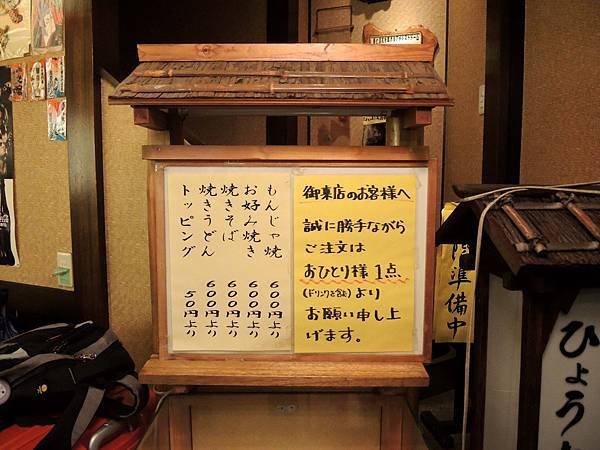 もんじゃ焼 600円より
お好み焼き 600円より
焼きそば 600円より
焼きうどん 600円より
トッピング 50円より
御来店のお客様へ
誠に勝手ながら
ご注文は
おひとり様1点
(ドリンクを含む)より
お願い申し上
げます。
準備中
ひょう